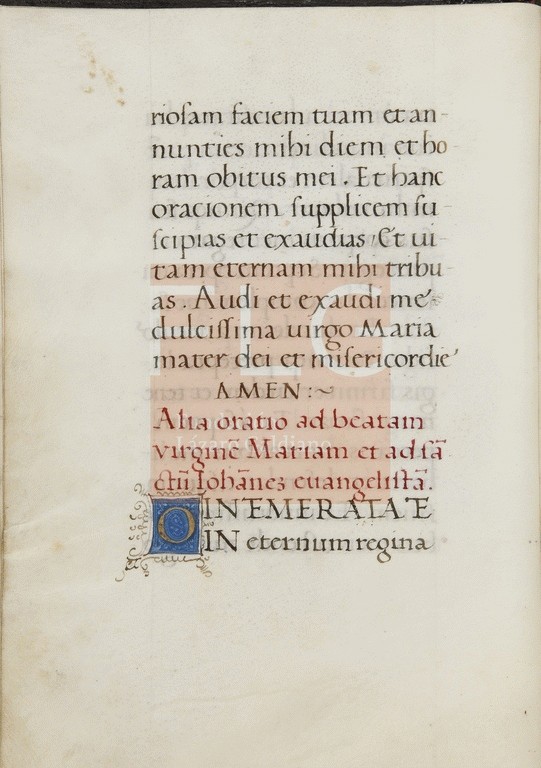 rioſam faciem tuam et an-
nunties mihi diem et ho-
ram obitus mei. Et hanc
oracionem ſupplicem ſu-
ſcipias et exaudias, Et ui-
tam eternam mihi tribu-
as. Audi et exaudi me
dulciſſima uirgo Maria
mater dei et misericordie
AMEN:~
Alia oratio ad beatam
virginē Mariam et ad ſā
ctū̄ Iohānez euangeliſtā.
O INTEMERATA E
IN eternum regina